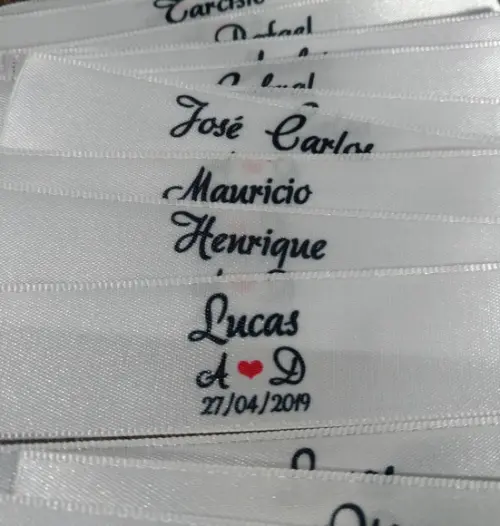 Tarcisio
Rafael
José Carlos
Mauricio
Henrique
Lucas
A ❤ D
27/04/2019